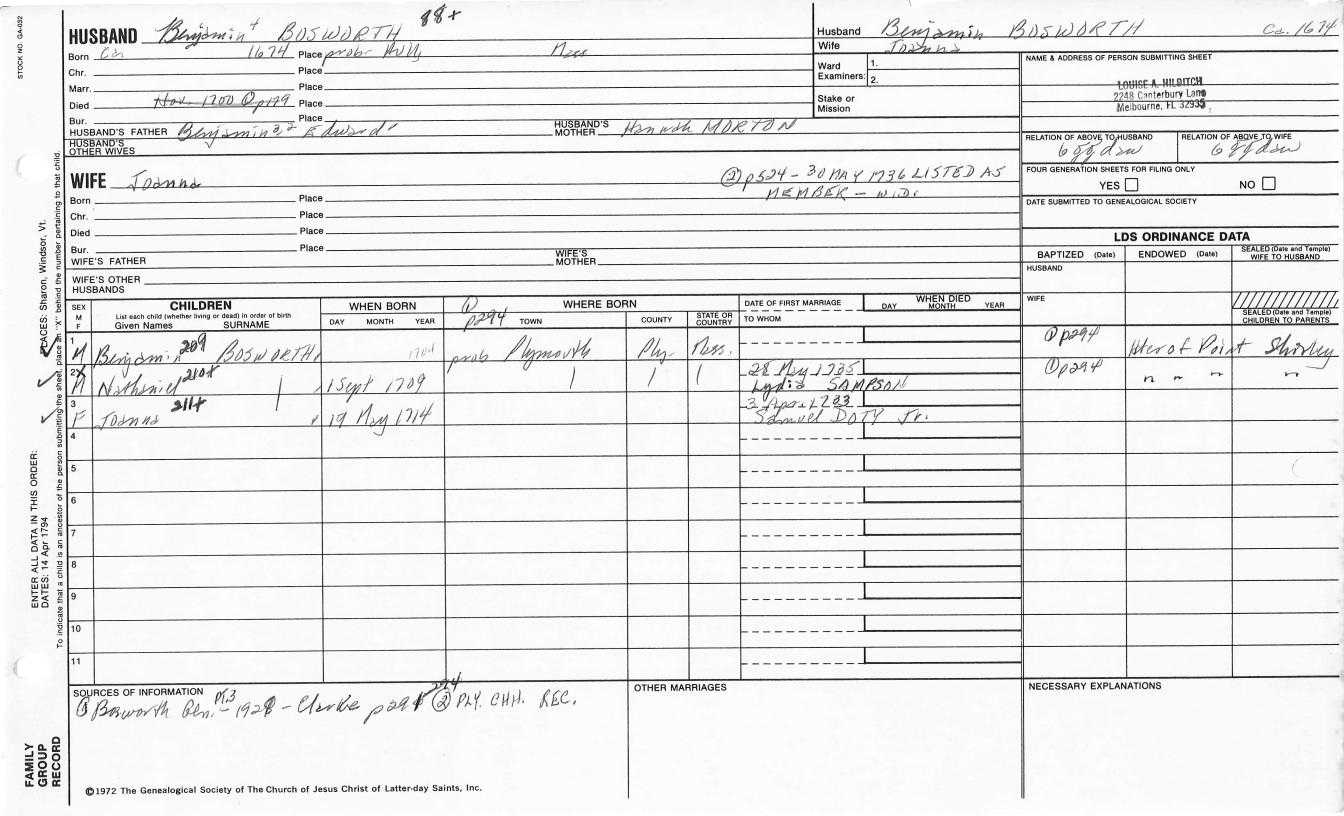 STOCK NO. GA-052
88+
HUSBAND Benjamin⁴ BOSWORTH
Born Ca. 1674 Place prob. Hull Mass
Chr. Place
Marr. Place
Died Nov. 1700 ① p179 Place
Bur. Place
HUSBAND'S FATHER Benjamin³,² Edward¹ HUSBAND'S MOTHER Hannah MORTON
HUSBAND'S OTHER WIVES
WIFE Joanna
② p524 - 30 MAY 1736 LISTED AS
MEMBER - WID.
Born Place
Chr. Place
Died Place
Bur. Place
WIFE'S FATHER WIFE'S MOTHER
WIFE'S OTHER HUSBANDS
Husband Benjamin BOSWORTH Ca. 1674
Wife Joanna
Ward Examiners: 1.
2.
Stake or Mission
NAME & ADDRESS OF PERSON SUBMITTING SHEET
LOUISE A. HILDITCH
2248 Canterbury Lane
Melbourne, FL 32935
RELATION OF ABOVE TO HUSBAND RELATION OF ABOVE TO WIFE
6 ggdau 6 ggdau
FOUR GENERATION SHEETS FOR FILING ONLY
YES NO
DATE SUBMITTED TO GENEALOGICAL SOCIETY
LDS ORDINANCE DATA
BAPTIZED (Date) ENDOWED (Date) SEALED (Date and Temple) WIFE TO HUSBAND
HUSBAND
WIFE
SEALED (Date and Temple) CHILDREN TO PARENTS
SEX M F
CHILDREN
List each child (whether living or dead) in order of birth
Given Names SURNAME
WHEN BORN
DAY MONTH YEAR
WHERE BORN
① p294 TOWN COUNTY STATE OR COUNTRY
DATE OF FIRST MARRIAGE
TO WHOM
WHEN DIED
DAY MONTH YEAR
1 M Benjamin 209 BOSWORTH prob Plymouth Ply. Mass. ① p294 later of Point Shirley
2 X M Nathaniel 210+ 1 Sept 1709 28 May 1735 Lydia SAMPSON ① p294 " " " "
3 F Joanna 211+ 19 May 1714 3 Apr 1733 Samuel DOTY Jr.
4
5
6
7
8
9
10
11
SOURCES OF INFORMATION
① Bosworth Gen. Pt.3 - 1928 - Clarke p294 ② PLY. CHH. REC.
OTHER MARRIAGES
NECESSARY EXPLANATIONS
©1972 The Genealogical Society of The Church of Jesus Christ of Latter-day Saints, Inc.
FAMILY GROUP RECORD
ENTER ALL DATA IN THIS ORDER:
DATES: 14 Apr 1794
PLACES: Sharon, Windsor, Vt.
To indicate that a child is an ancestor of the person submitting the sheet, place an "X" behind the number pertaining to that child.